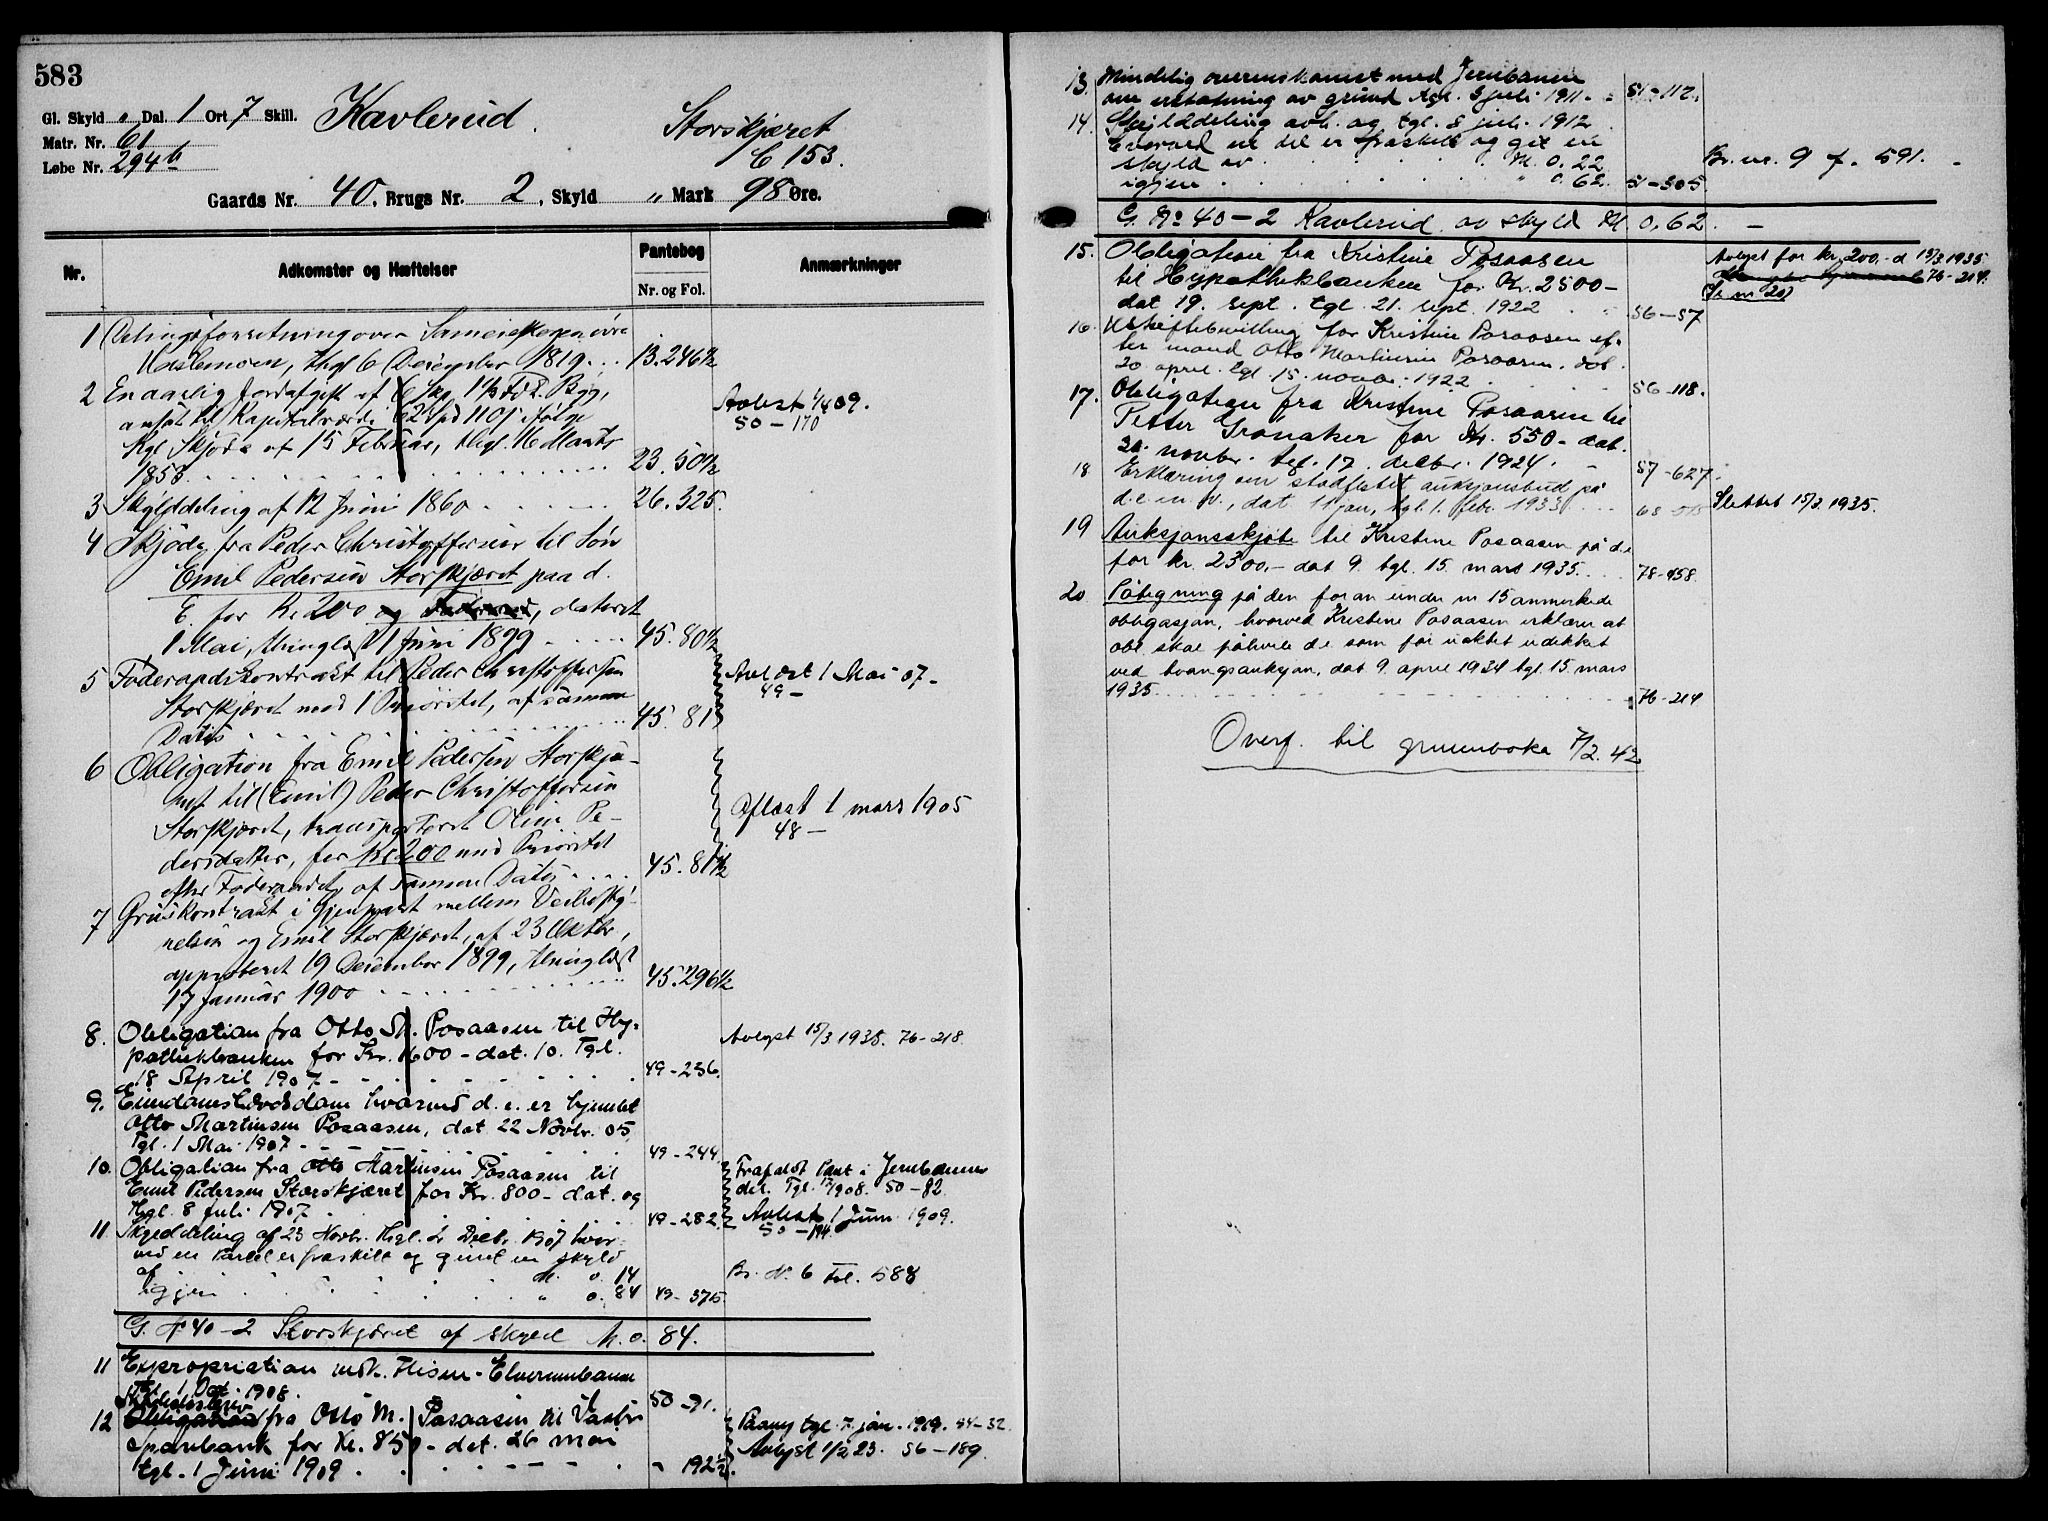 583
Gl. Skyld " Dal. 1 Ort 7 Skill. Kavlerud. Storskjæret
Matr. Nr. 61 C 153.
Løbe Nr. 294b
Gaards Nr. 40. Brugs Nr. 2, Skyld " Mark 98 Øre.
Nr. Adkomster og Hæftelser Pantebog Anmærkninger
Nr. og Fol.
1 over
thgl 6 December 1819. 13.246½
2 En aarlig Jordafgift af 6 Skp. Byg,
ansat til Kapitalværdi 62 Spd 110 ifølge
Kgl. Skjøde af 15 Februar, thgl.
1858. 23.50½
Avlæst 1/4 09.
50-170
3 Skylddeling af 12 Juni 1860 26.325.
4 Skjøde fra Peder Christoffersen til Søn
Emil Pedersen Storskjæret paa d.
E for Kr 200 og Føderaad, dateret
1 Mai, thinglæst 1 Juni 1899 45.80½
5 Føderaadskontrakt til Peder Christoffersen
Storskjæret med 1 Prioritet, af samme
Datis 45.81
Avlæst 1 Mai 07-
49-
6 Obligation fra Emil Pedersen Storskjæ-
ret til (Emil) Peder Christoffersen
Storskjæret, transporteret Oline Pe-
dersdatter, for Kr 200 med Prioritet
efter Føderaadet, af samme Datis 45.81½
Aflæst 1 mars 1905
48-
7 Gruskontrakt i Gjenpart mellem Veibesty-
relsen og Emil Storskjæret, af 23 Oktbr,
approberet 19 December 1899, thinglæst
17 Januar 1900 45.296½
8. Obligation fra Otto M. Posaasen til Hy-
pothekbanken for Kr. 1600- dat. 10. Tgl.
18 April 1907- 49-236.
Avlyst 15/3 1935. 76-218.
9. Eiendomsbesiddelse hvorved d. e. er hjemlet
Otto Martinsen Posaasen, dat 22 Novbr. 05,
Tgl. 1 Mai 1907 49-244.
10. Obligation fra Otto Martinsen Posaasen til
Emil Pedersen Storskjæret for Kr. 800- dat. og
thgl. 8 Juli 1907 49-282.
Frafaldt Pant i Jernbanens
del. Tgl. 1908. 50-82.
Avlæst 1 Juni 1909.
50-194.
11 Skylddeling af 23 Novbr. thgl. 2 Decbr. 1907 hvor-
ved en Parcel er fraskilt og givet en skyld
af M. 0. 14
igjen " 0. 84 49-375.
Br. N. 6 Fol. 588
G. № 40-2 Storskjæret af skyld M. 0. 84.
11 Expropriation vedk. Flisen-Elverumbanen
Tgl. 1 Oct. 1908. 50-91.
Skadesløsbrev
12 Obligation fra Otto M. Posaasen til Vaaler
Sparebank for Kr. 850- dat. 26 mai
tgl. 1 Juni 1909. " 192½.
Paany tgl. 7 jan. 1919. 54-32.
Avlyst 1/2 23. 56-189.
13. Mindelig overenskomst med Jernbanen
om erstatning av grund tgl. 5 juli 1911. 51-112.
14. Skylddeling avh. og tgl. 5 juli 1912.
Hvorved en del er fraskilt og git en
skyld av M. 0. 22
igjen " 0. 62. 51-305.
Br. nr. 9 f. 591.
G. № 40-2 Kavlerud av skyld M. 0,62.
15. Obligation fra Kristine Posaasen
til Hypothekbanken for Kr. 2500-
dat 19. sept. tgl. 21. sept. 1922 56-57
Avlyst for kr. 200,- d 15/3 1935
76-214.
(Se nr 20)
16. Uskiftebevilling for Kristine Posaasen ef-
ter mand Otto Martinsen Posaasen. dat.
20 april. tgl. 15. novbr. 1922. 56-118.
17. Obligation fra Kristine Posaasen til
Petter Grønaker for Kr. 550- dat.
20. novbr. tgl. 17. decbr. 1924. 57-627.
18 Erklæring om stadfestet auksjonsbud på
d. e. m. v., dat 11 jan, tgl. 1. febr. 1933
Slettet 15/3. 1935.
19 Auksjonsskjøte til Kristine Posaasen på d.e
for kr. 2300,- dat 9. tgl. 15. mars 1935. 75-458.
20 Påtegning på den foran under nr 15 anmerkede
obligasjon, hvorved Kristine Posaasen erklærer at
obl. skal påhvile d.e. som før uaktet udekket
ved tvangsauksjon, dat 9. april 1934 tgl. 15. mars
1935. 76-214
Overf. til grunnboka 7/2. 42